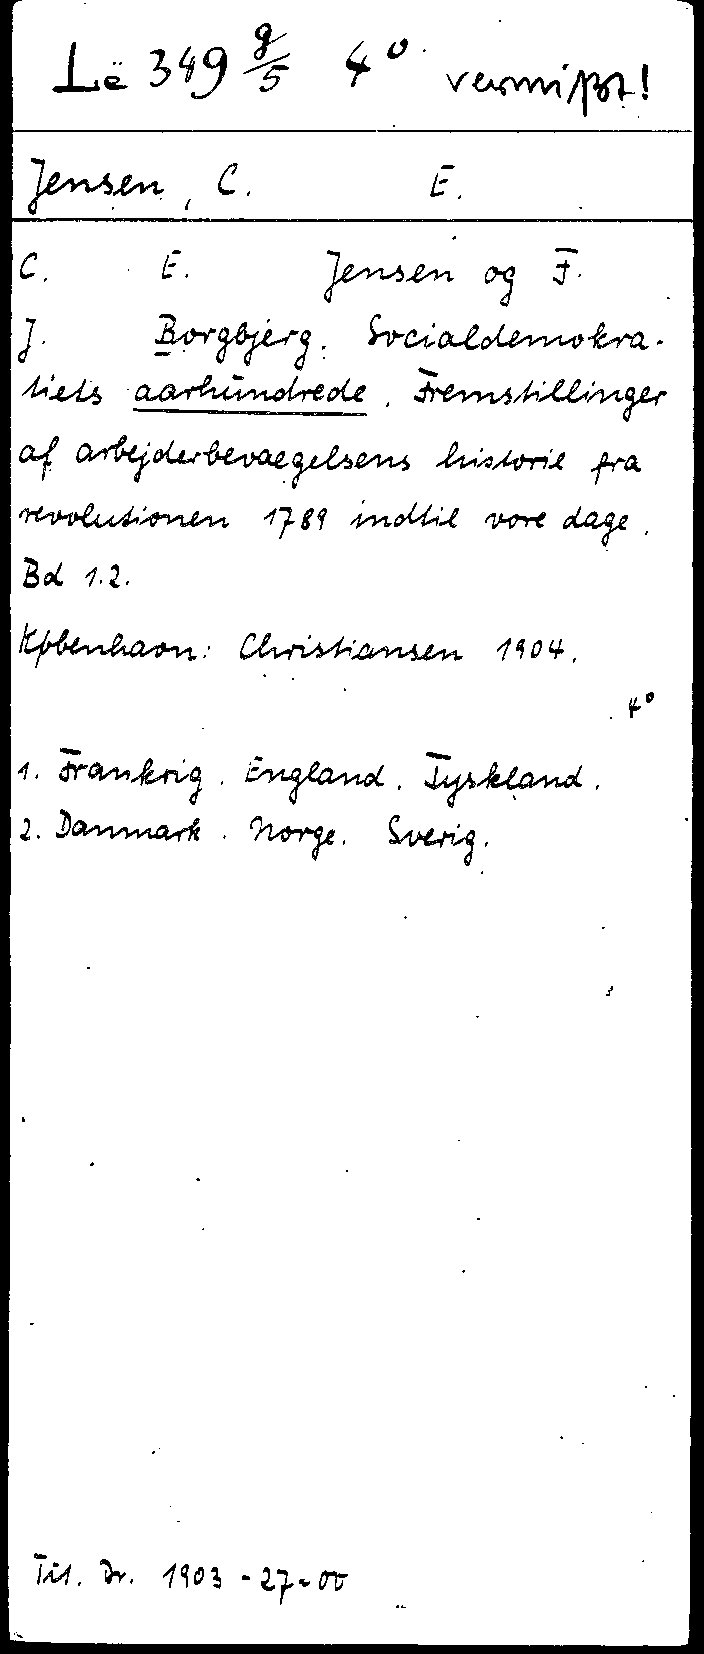 Lë 349 g/5 4° vermißt!
Jensen, C. E.
C. E. Jensen og F.
J. Borgbjerg. Socialdemokra-
tiets aarhundrede. Fremstillinger
af arbejderbevaegelsens historie fra
revolutionen 1789 indtil vore dage.
Bd 1.2.
København: Christiansen 1904.
4°
1. Frankrig. England. Tyskland.
2. Danmark. Norge. Sverig.
Tit. Dr. 1903-27-00